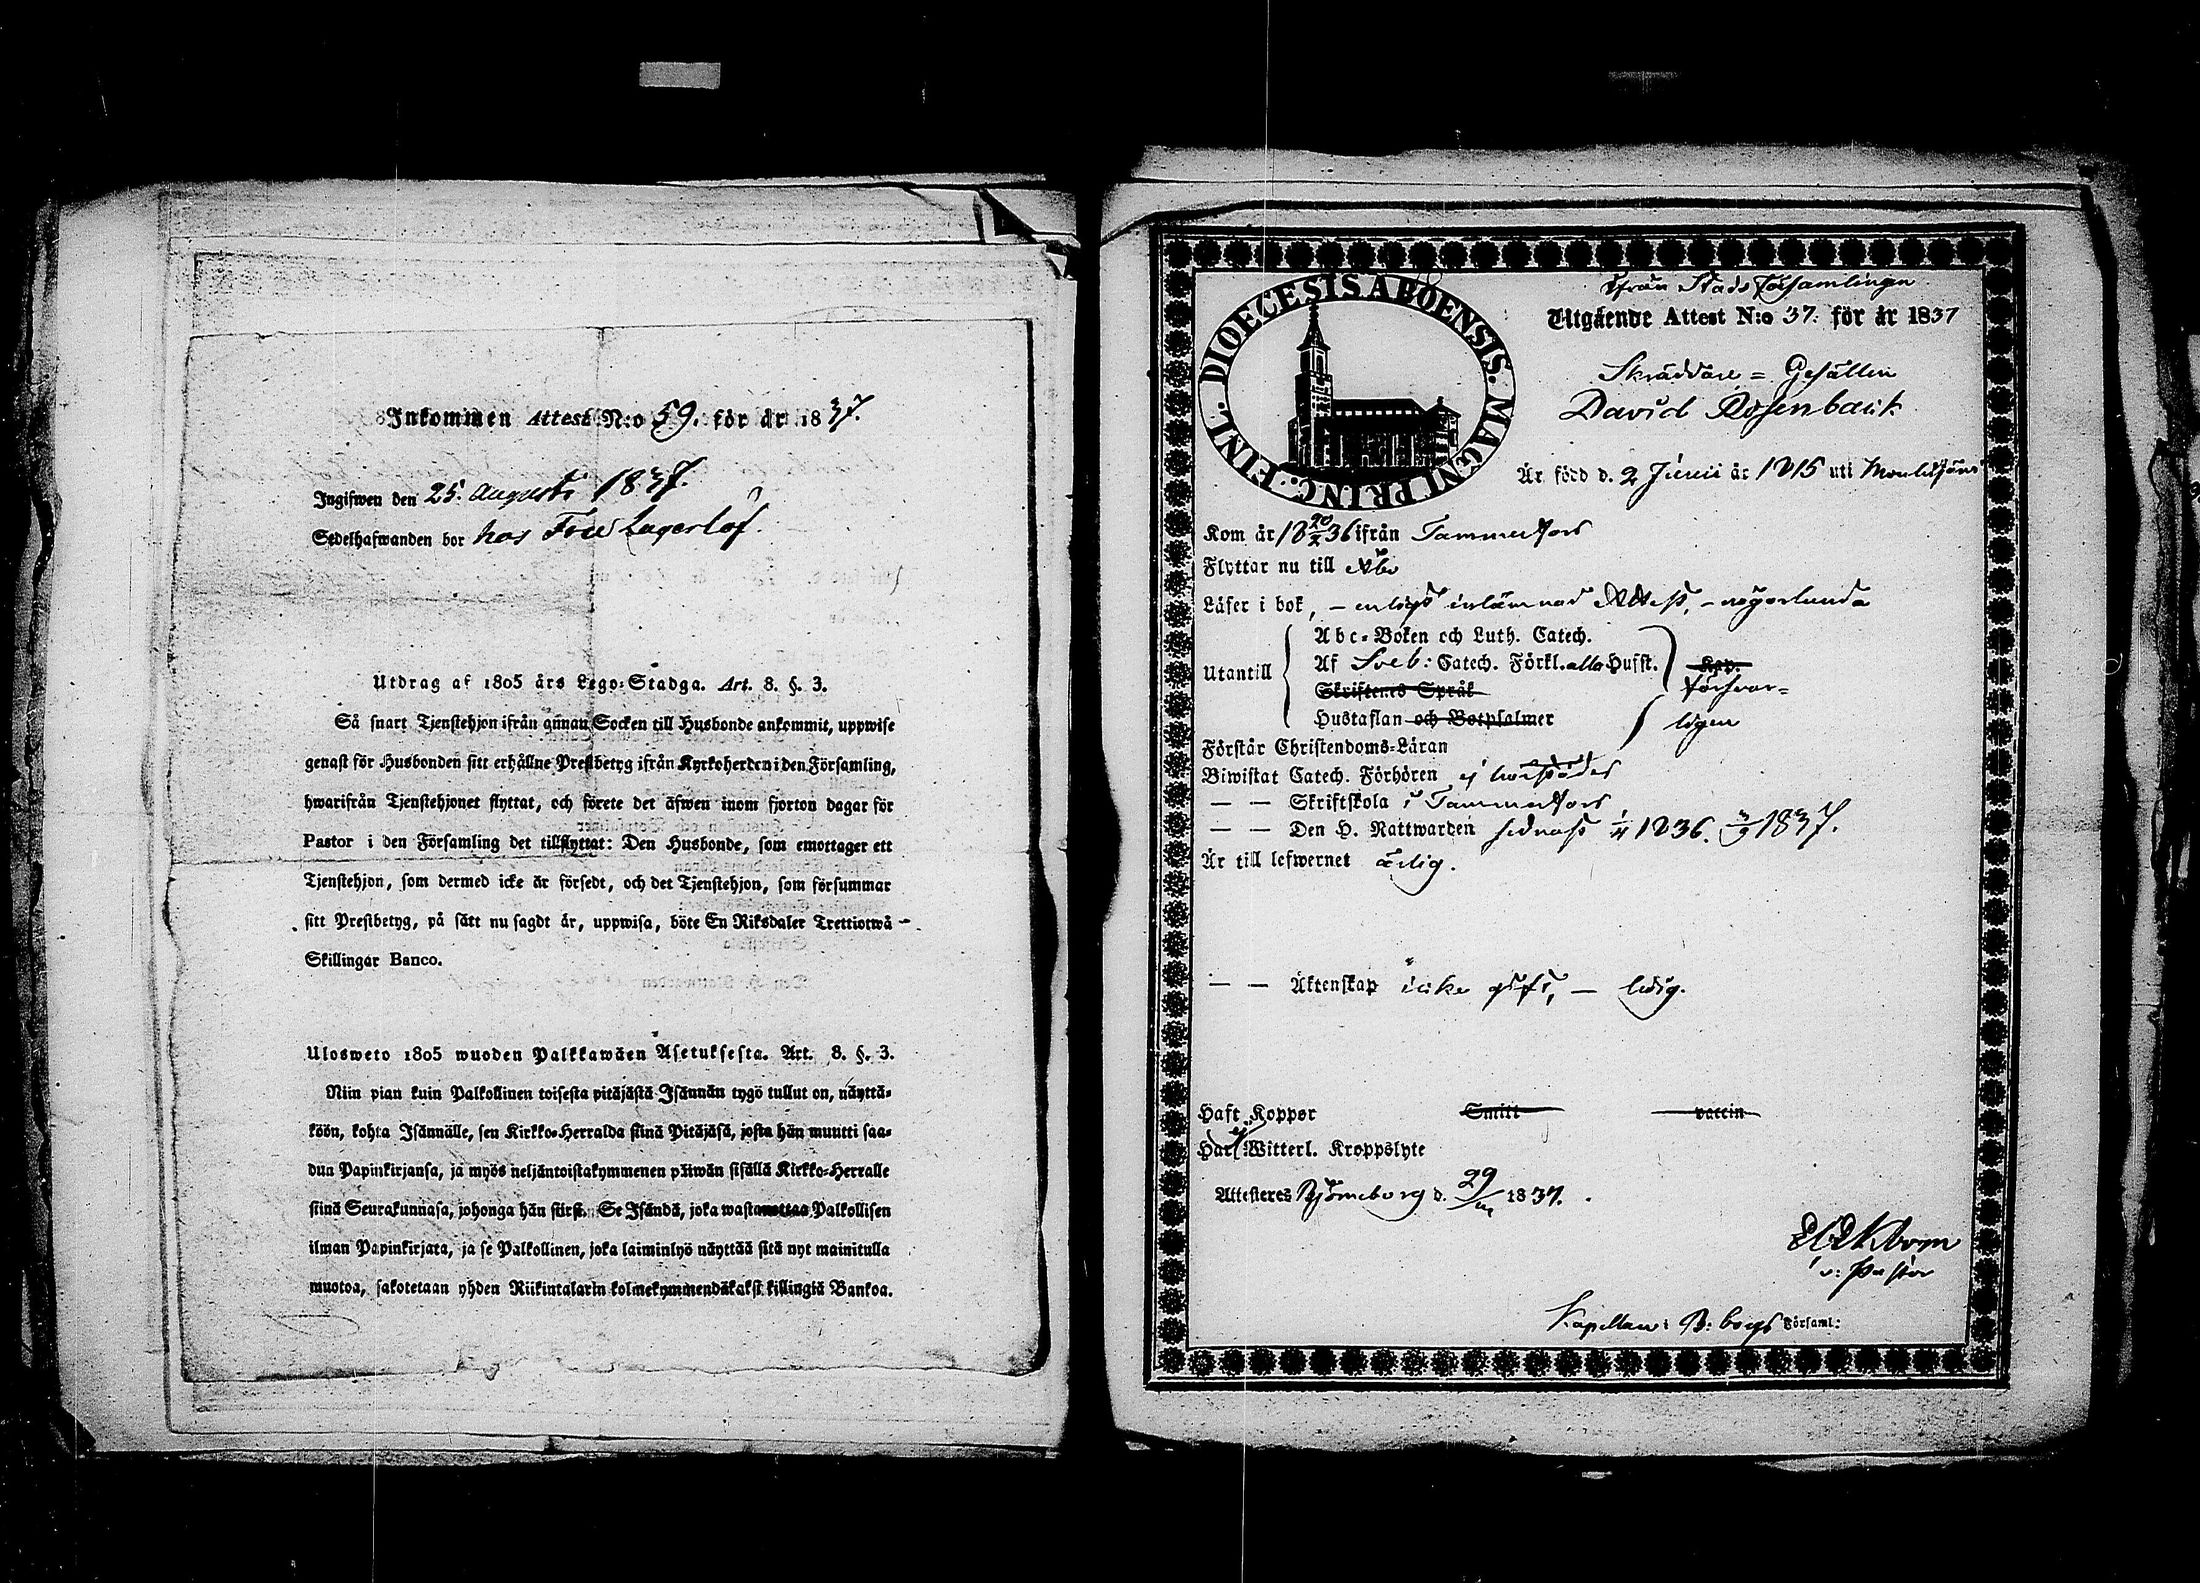 Inkommen Attest N:o 59. för år 1837.
Ingifwen den 25. Augusti 1837.
Sedelhafwanden bor hos Frie Lagerlöf.
Utdrag af 1805 års Lego-Stadga. Art. 8. §. 3.
Så snart Tjenstehjon ifrån annan Socken till Husbonde ankommit, uppwise
genast för Husbonden sitt erhållne Prestbetyg ifrån Kyrkoherden i den Församling,
hwarifrån Tjenstehjonet flyttat, och förete det äfwen inom fjorton dagar för
Pastor i den Församling det tillflyttat: Den Husbonde, som emottager ett
Tjenstehjon, som dermed icke är försedt, och det Tjenstehjon, som försummar
sitt Prestbetyg, på sätt nu sagdt är, uppwisa, böte En Riksdaler Trettiotwå
Skillingar Banco.
Ulosweto 1805 wuoden Palkkawäen Asetuksesta. Art. 8. §. 3.
Niin pian kuin Palkollinen toisesta pitäjästä Isännän tygö tullut on, näyttä-
köön, kohta Isännälle, sen Kirkko-Herralda siinä Pitäjäsä, josta hän muutti saa-
dun Papinkirjansa, ja myös neljäntoistakymmenen päiwän sisällä Kirkko-Herralle
siinä Seurakunnasa, johonga hän siirsi. Se Isändä, joka wastanottaa Palkollisen
ilman Papinkirjata, ja se Palkollinen, joka laiminlyö näyttää sitä nyt mainitulla
muotoa, sakotetaan yhden Riikintalarin kolmekymmendäkaksi killingiä Bankoa.
DIOECESIS ABOENSIS. MAGNI PRINC. FINL.
Ifrån Stads Församlingen
Utgående Attest N:o 37. för år 1837
Skräddare = Gesällen
David Rosenback
Är född d. 2 Junii år 1815 uti Mouhijärvi
Kom år 18 20/2 36 ifrån Tammerfors
Flyttar nu till Åbo
Läser i bok, - enligt inlämnad Attest, - någorlunda
Abc-Boken och Luth. Catech.
Utantill Af Sveb: Catech. Förkl. alla Hufst. Kap.
Skriftenes Språk försvar=
Hustaflan och Botpsalmer ligen
Förstår Christendoms-Läran
Biwistat Catech. Förhören ej härstädes
— — Skriftskola i Tammerfors
— — Den H. Nattwarden sednast 1/4 1836. 3/9 1837.
Är till lefwernet ärlig.
— — Äktenskap icke gift, - ledig.
Haft Koppor Smitt vaccin
Har ej Witterl. Kroppslyte
Attesteres Björneborg d. 29/ 1837.
v: Pastor
Kapellan i B:borgs Församl: